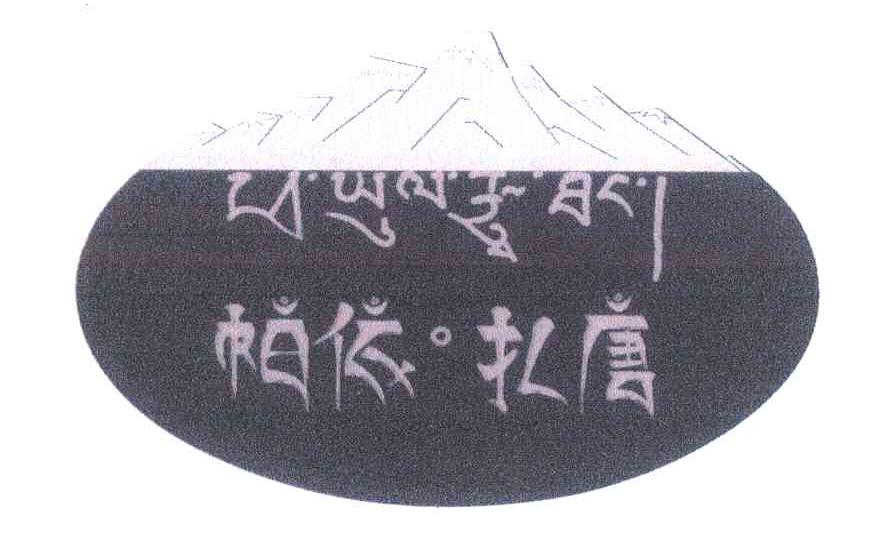 ཕ་ཡུལ་རྩྭ་ཐང་།
帕依·扎唐